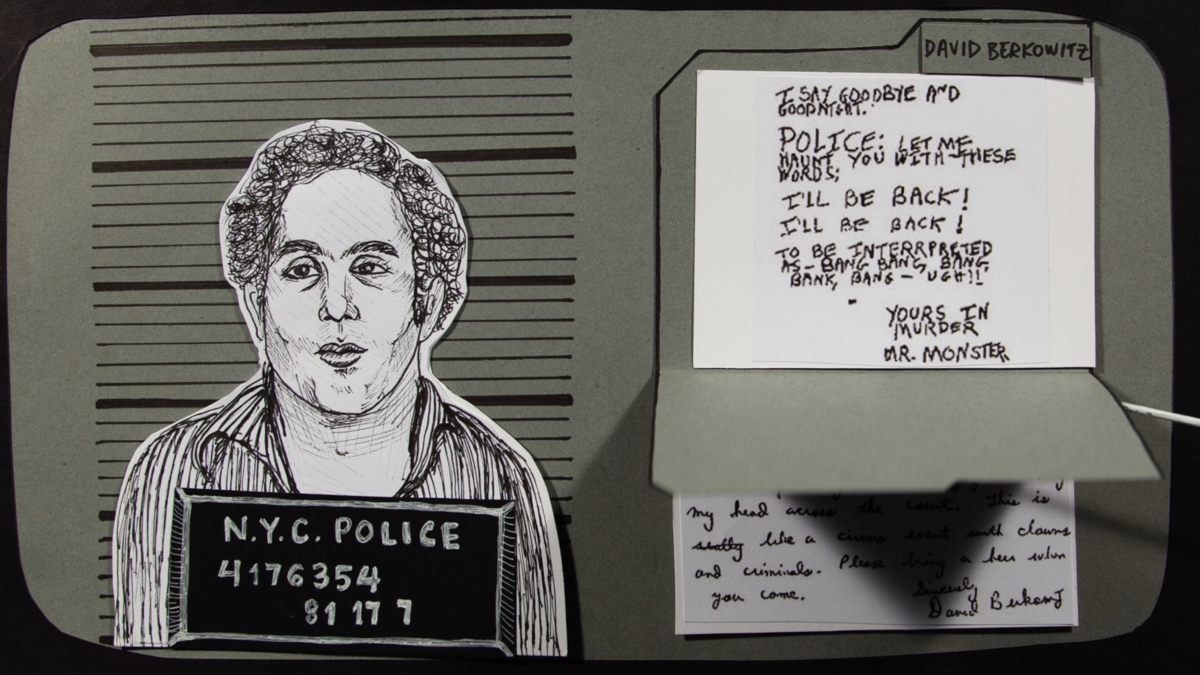 N.Y.C. POLICE
4176354
81 17 7
DAVID BERKOWITZ
I SAY GOODBYE AND
GOODNIGHT.
POLICE: LET ME
HAUNT YOU WITH THESE
WORDS;
I'LL BE BACK!
I'LL BE BACK!
TO BE INTERRPRETED
AS - BANG BANG, BANG,
BANK, BANG - UGH!!
YOURS IN
MURDER
MR. MONSTER
my head across the court. This is
like a circus event with clowns
and criminals. Please bring a beer when
you come.
Sincerely
David Berkowitz